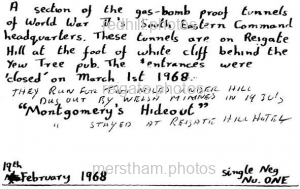 A section of the gas-bomb proof tunnels
of World War II's South Eastern Command
headquarters. These tunnels are on Reigate
Hill at the foot of white cliff behind the
Yew Tree pub. The entrances were
'closed' on March 1st 1968.
THEY RUN FOR UNDER HILL
DUG OUT BY WELSH MINNERS IN 1930's
"Montgomery's Hideout"
" STAYED AT REIGATE HILL HOTEL
19th February 1968
single Neg
No. ONE
merstham.photos